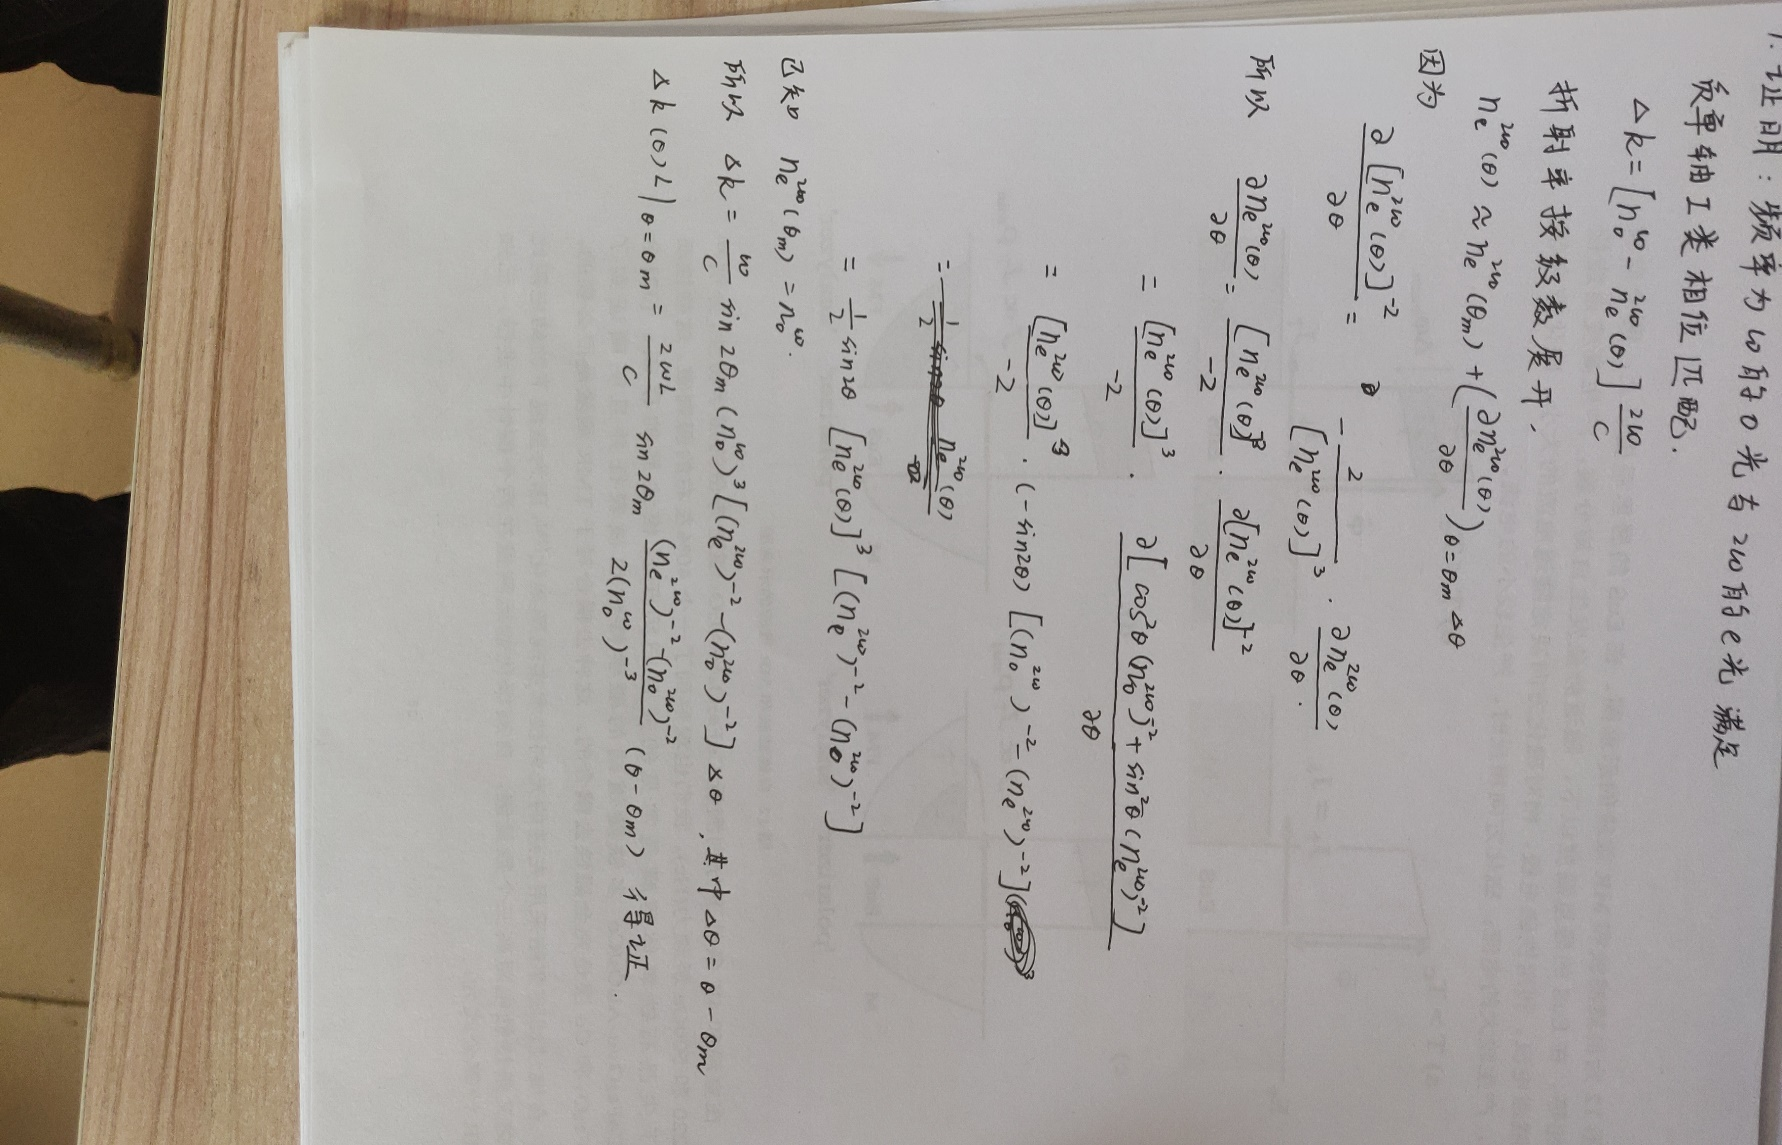 1. 证明：频率为ω的o光与2ω的e光满足
负单轴I类相位匹配.
Δk=[n_o^ω-n_e^{2ω}(θ)] 2ω/c
折射率按级数展开,
n_e^{2ω}(θ)≈n_e^{2ω}(θm)+(∂n_e^{2ω}(θ)/∂θ)θ=θm Δθ
因为
∂[n_e^{2ω}(θ)]^{-2}/∂θ = -2/[n_e^{2ω}(θ)]^3 · ∂n_e^{2ω}(θ)/∂θ.
所以 ∂n_e^{2ω}(θ)/∂θ = [n_e^{2ω}(θ)]^3/-2 · ∂[n_e^{2ω}(θ)]^{-2}/∂θ
= [n_e^{2ω}(θ)]^3/-2 · ∂[cos²θ(n_o^{2ω})^{-2}+sin²θ(n_e^{2ω})^{-2}]/∂θ
= [n_e^{2ω}(θ)]^3/-2 · (-sin2θ)[(n_o^{2ω})^{-2}-(n_e^{2ω})^{-2}]
= 1/2 sin2θ [n_e^{2ω}(θ)]^3 [(n_e^{2ω})^{-2}-(n_o^{2ω})^{-2}]
已知 n_e^{2ω}(θm)=n_o^ω.
所以 Δk=ω/c sin2θm(n_o^ω)^3[(n_e^{2ω})^{-2}-(n_o^{2ω})^{-2}]Δθ,其中Δθ=θ-θm
Δk(θ)L|θ=θm = 2ωL/c sin2θm (n_e^{2ω})^{-2}-(n_o^{2ω})^{-2}/2(n_o^ω)^{-3} (θ-θm) 得证.